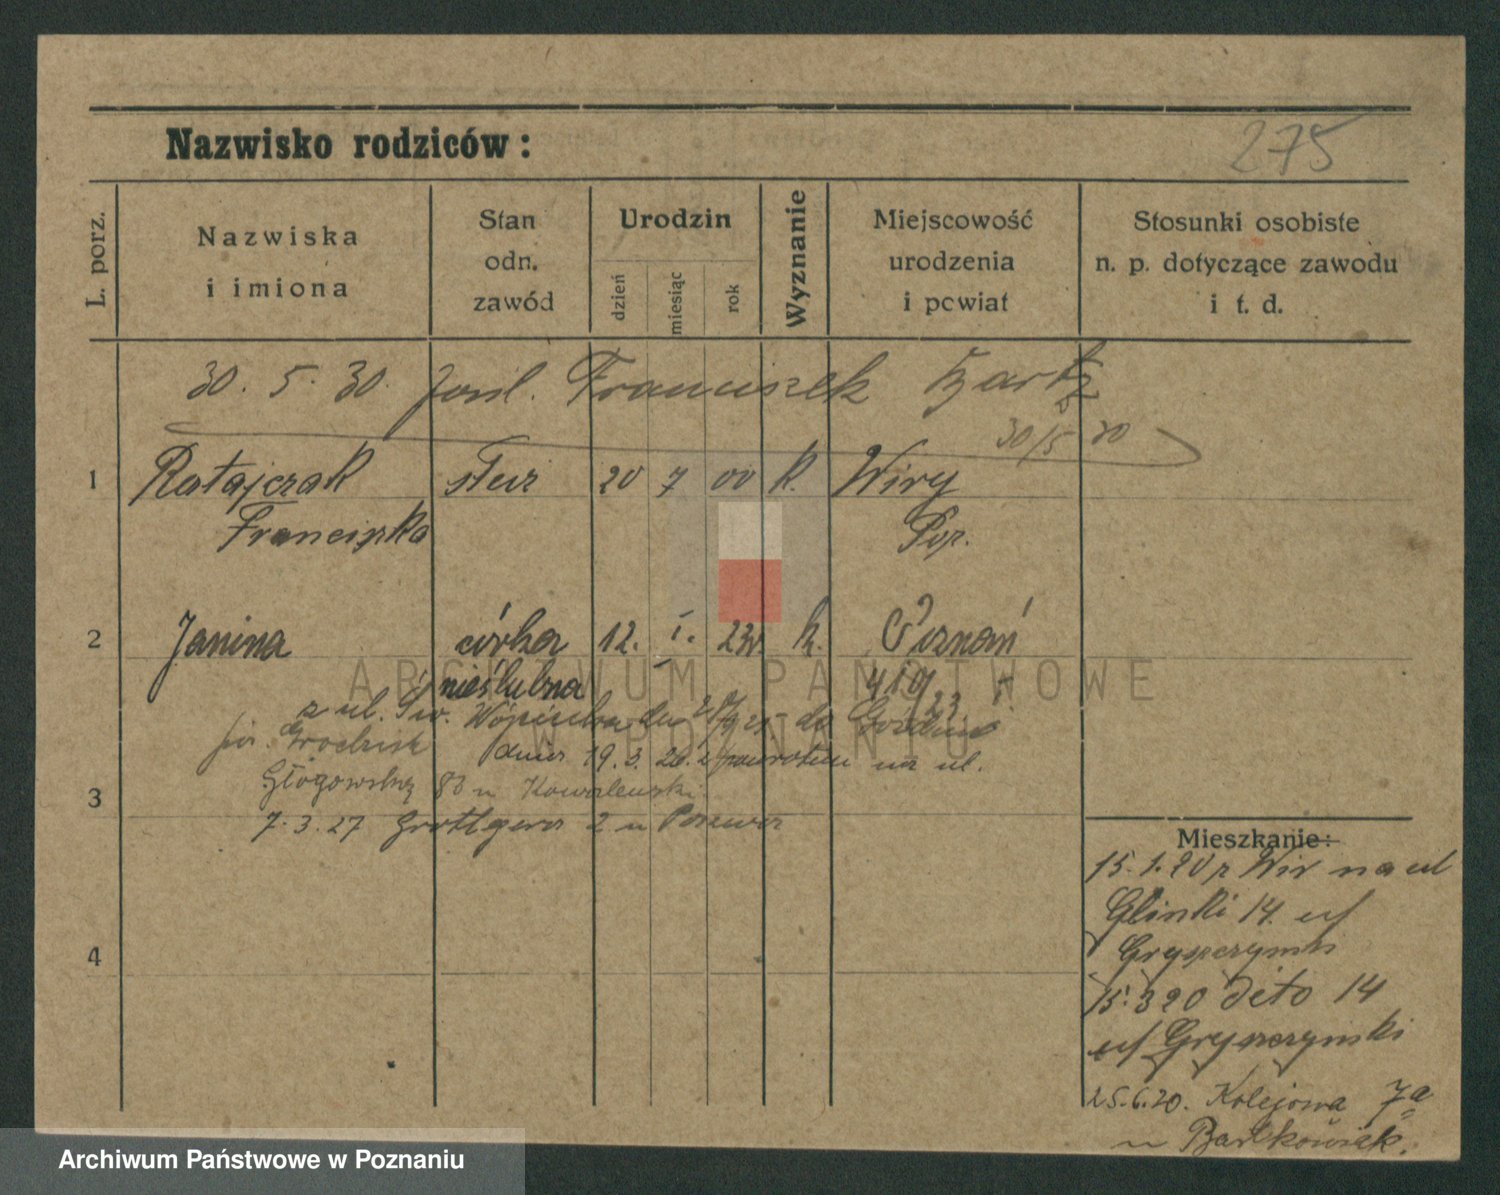 Nazwisko rodziców :
275
L. porz.
Nazwiska
i imiona
Stan
odn.
zawód
Urodzin
dzień
miesiąc
rok
Wyznanie
Miejscowość
urodzenia
i powiat
Stosunki osobiste
n. p. dotyczące zawodu
i t. d.
30. 5. 30. Franciszek
30/5 30
1 Ratajczak służ 20 7 00 k. Wiry
Franciszka Poz.
2 Janina córka 12. I. 23r. k. Poznań
nieślubna
z ul. Św. Wojciecha do
pow. Grodzisk dnia 19. 3. 26. z powrotem na ul.
3 Głogowską 83 u Kowalewski
7. 3. 27 Grottgera 2 u
4
Mieszkanie:
15.1.20 z Wir na ul
Glinki 14. u/
Gryszczynski
15.3 20 dito 14
u/ Gryszczynski
25.6.20. Kolejowa 7a
u Bartkowiak.
ARCHIWUM PAŃSTWOWE
W POZNANIU
Archiwum Państwowe w Poznaniu